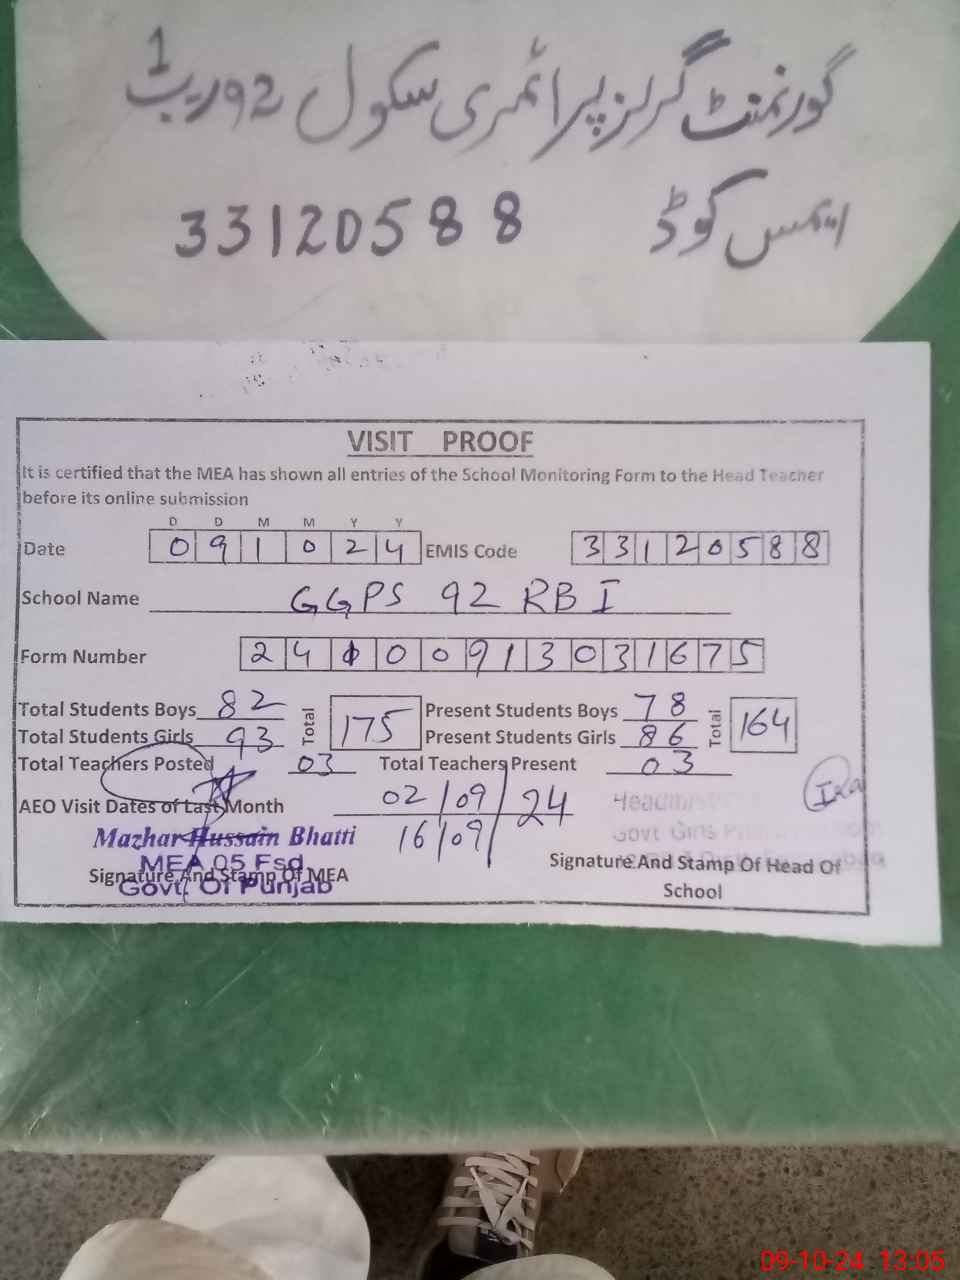 گورنمنٹ گرلز پرائمری سکول 92 ر ب 1
ایمس کوڈ 33120588
VISIT PROOF
It is certified that the MEA has shown all entries of the School Monitoring Form to the Head Teacher
before its online submission
D D M M Y Y
Date 0 9 1 0 2 4 EMIS Code 3 3 1 2 0 5 8 8
School Name GGPS 92 RB I
Form Number 2 4 1 0 0 9 1 3 0 3 1 6 7 5
Total Students Boys 82 Total 175 Present Students Boys 78 Total 164
Total Students Girls 93 Present Students Girls 86
Total Teachers Posted 03 Total Teachers Present 03
AEO Visit Dates of Last Month 02/09/24
16/09
Mazhar Hussain Bhatti
MEA 05 Fsd
Govt. Of Punjab
Signature And Stamp Of MEA
Govt Girls
Signature And Stamp Of Head Of
School
09-10-24 13:05